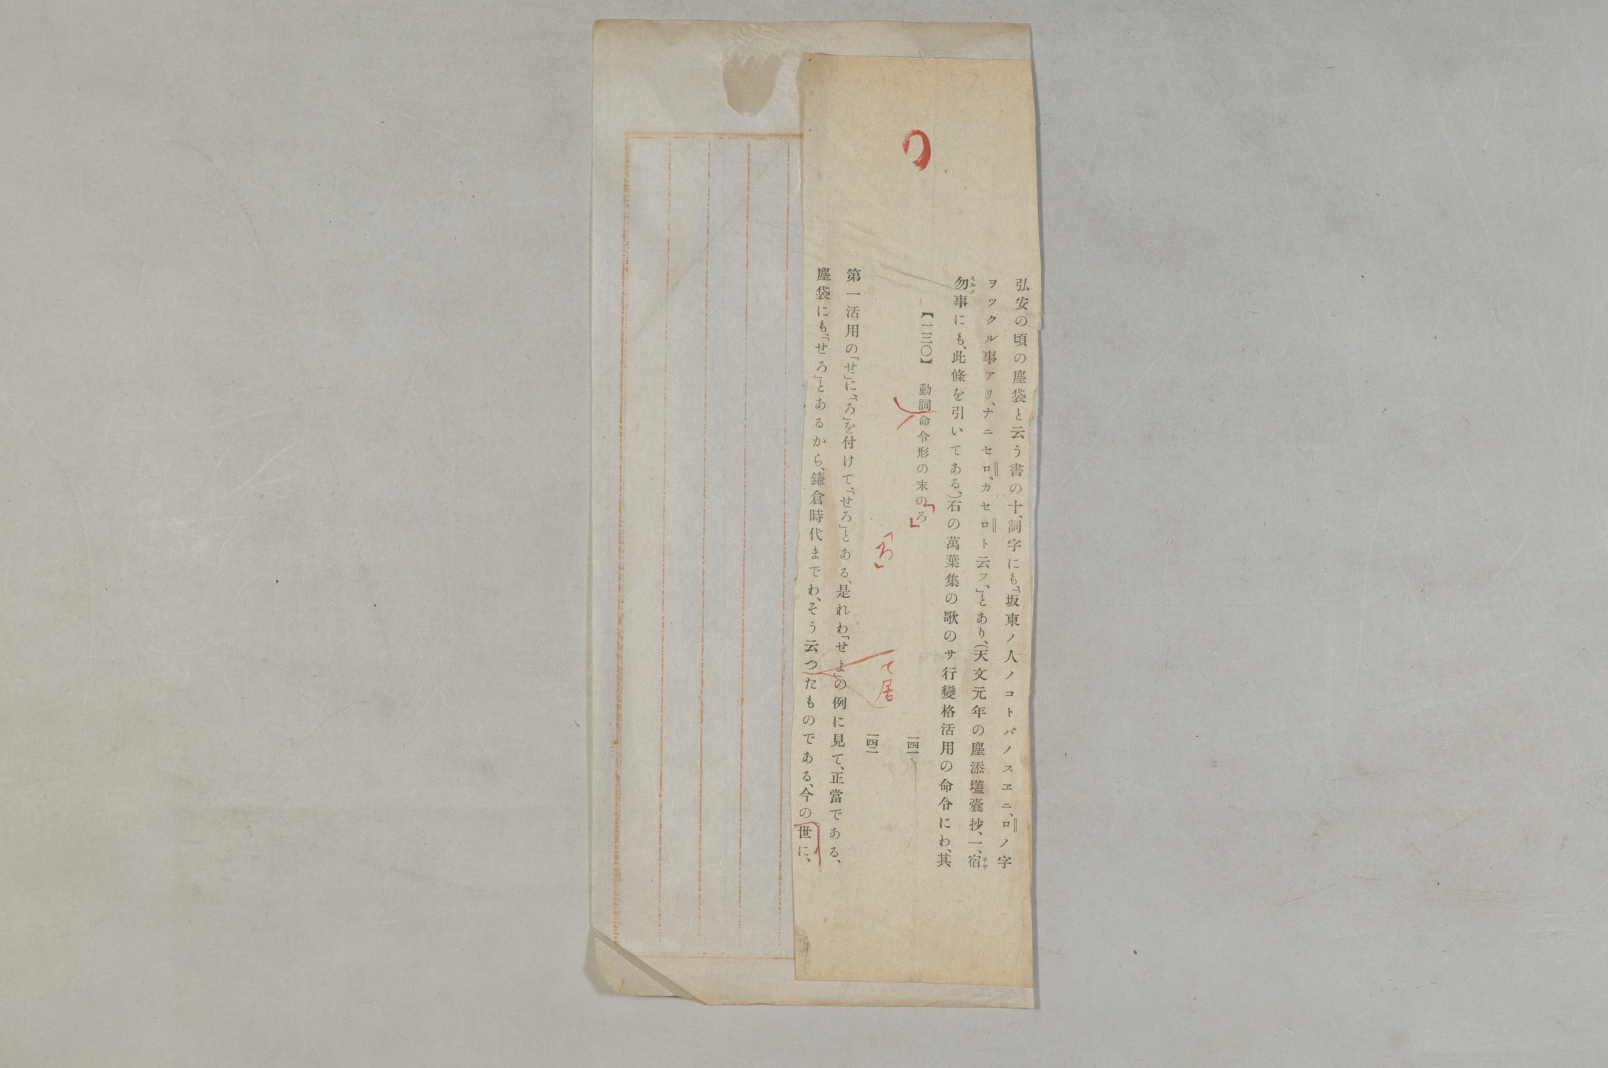 弘安の頃の塵袋と云う書の十、詞字にも、「坂東ノ人ノコトバノスヱニ、ロノ字
ヲツクル事アリ、ナニセロ、カセロト云フ、」とあり、(天文元年の塵添壒囊抄、一、宿
勿事にも、此條を引いてある、)右の萬葉集の歌のサ行變格活用の命令にわ、其
【一三〇】 動詞命令形の末のろ
「ろ」
一四一
て居
一四二
第一活用の「せ」に、「ろ」を付けて「せろ」とある、是れわ「せよ」の例に見て、正當である、
塵袋にも、「せろ」とあるから、鎌倉時代までわ、そう云つたものである、今の世に、